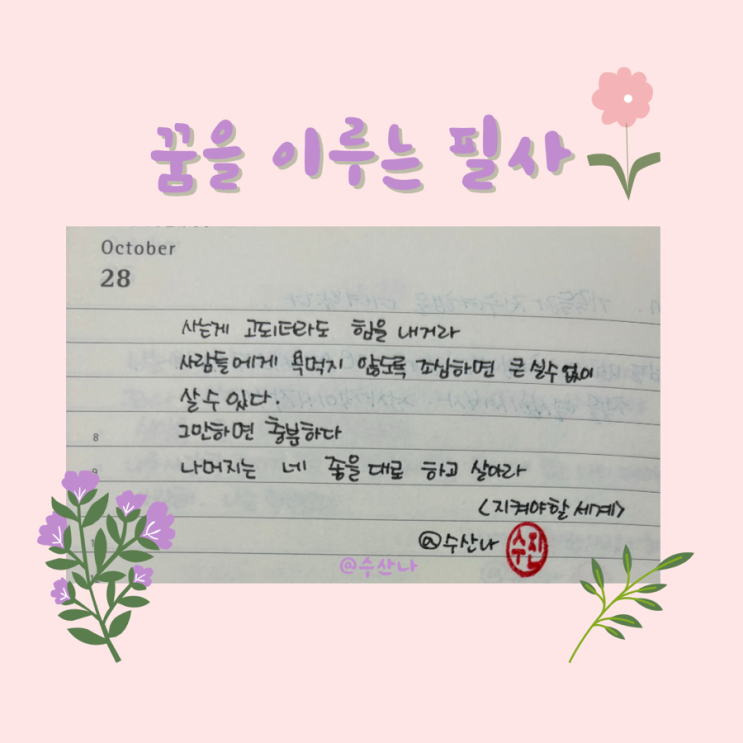 꿈을 이루는 필사
October
28
사는게 고되더라도 힘을 내거라
사람들에게 욕먹지 않도록 조심하면 큰 실수 없이
살 수 있다.
8
그만하면 충분하다
9
나머지는 네 좋을대로 하고 살아라
<지켜야할 세계>
@수산나
수진
@수산나